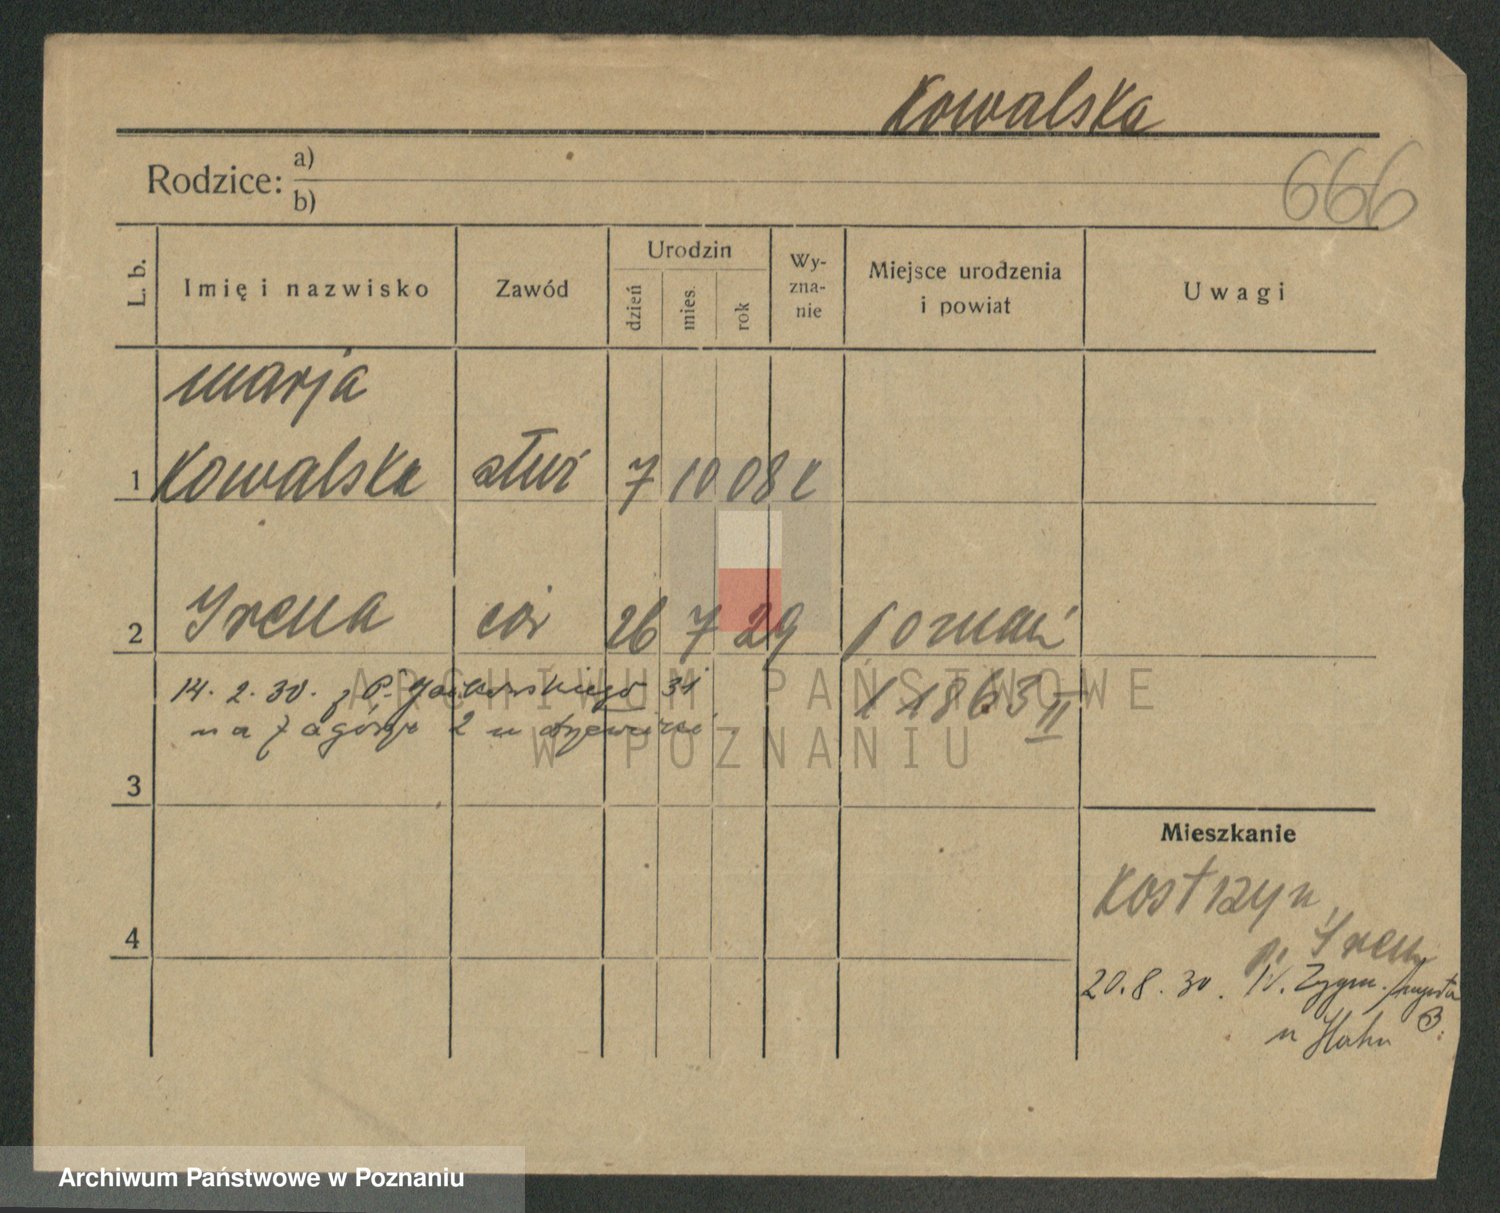 Kowalska
666
Rodzice: a)
b)
L. b.
Imię i nazwisko
Zawód
Urodzin
dzień
mies.
rok
Wy-
zna-
nie
Miejsce urodzenia
i powiat
Uwagi
Marja
1 Kowalska służ 7 10 08 k
2 Irena cór 26 7 29 Poznań
14. 2. 30. z P. 31 11863 II
na Zagórze 2 u
3
Mieszkanie
Kostrzyn
4
p. Śrem
20.8.30. W. Zygm. Augusta 3.
u Hahn
ARCHIWUM PAŃSTWOWE
W POZNANIU
Archiwum Państwowe w Poznaniu